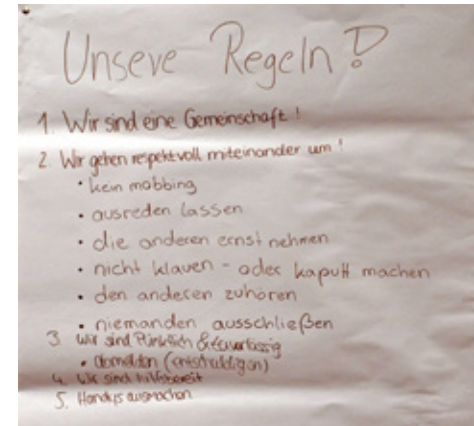 Unsere Regeln!
1. Wir sind eine Gemeinschaft!
2. Wir gehen respektvoll miteinander um!
• kein mobbing
• ausreden lassen
• die anderen ernst nehmen
• nicht klauen - oder kaputt machen
• den anderen zuhören
• niemanden ausschließen
3. wir sind Pünktlich & zuverlässig
• abmelden (entschuldigen)
4. Wir sind hilfsbereit
5. Handys ausmachen